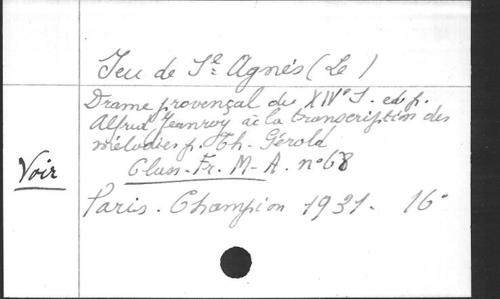 Jeu de Ste Agnès (Le)
Drame provençal du XIVe S. ed. p.
Alfred Jeanroy à la transcription des
mélodies p. Th. Gérold
Voir Class. Fr. M-A. n° 68
Paris. Champion 1931. 16°